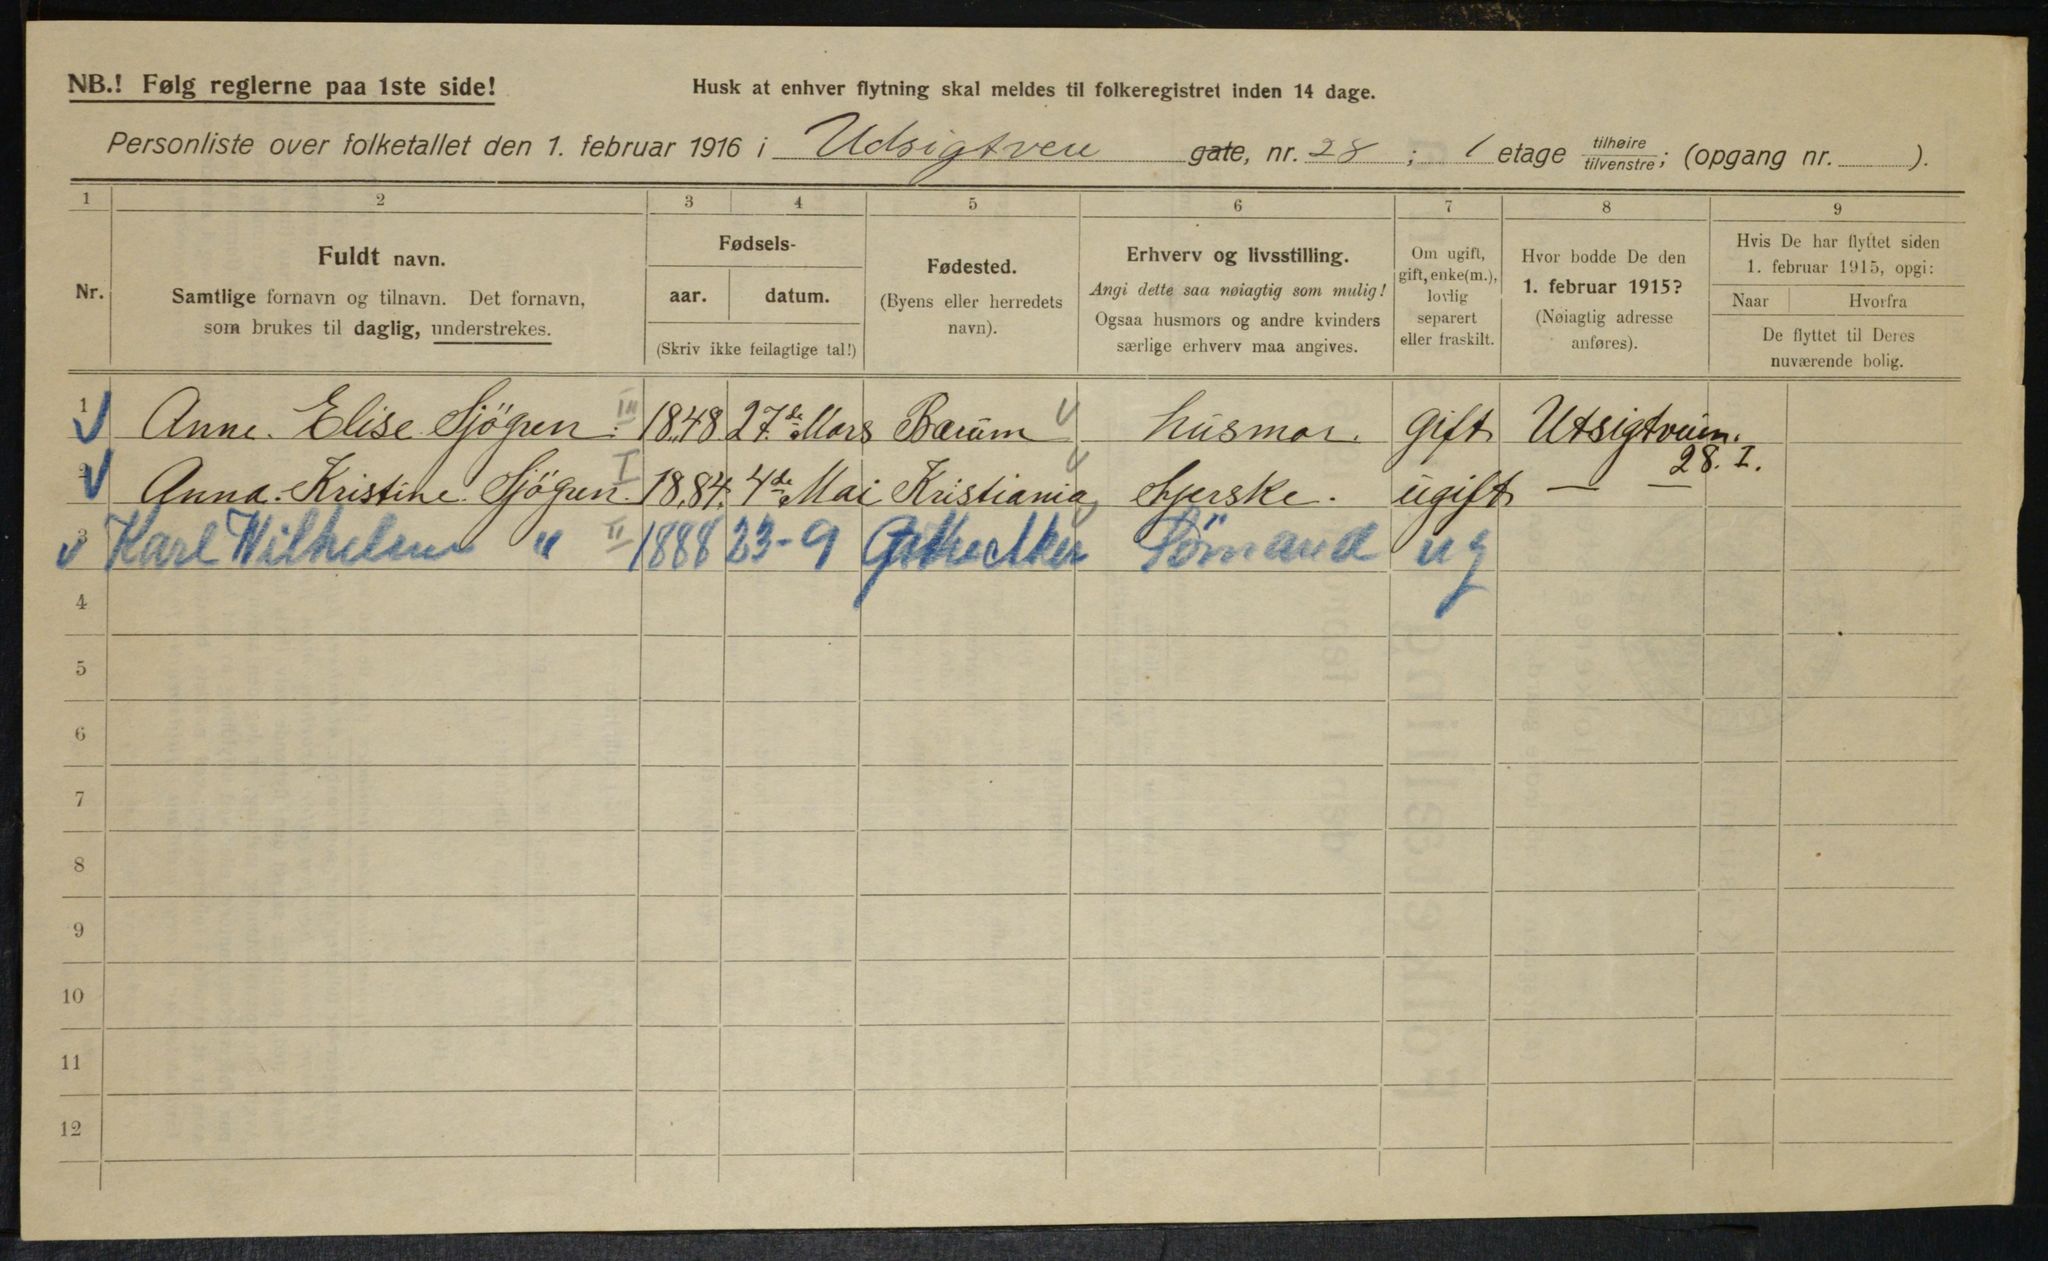 NB.! Følg reglerne paa 1ste side!
Husk at enhver flytning skal meldes til folkeregistret inden 14 dage.
Personliste over folketallet den 1. februar 1916 i Udsigtveien gate, nr. 28 ; 1 etage tilhøire tilvenstre; (opgang nr. ).
1 2 3 4 5 6 7 8 9
Nr.
Fuldt navn.
Samtlige fornavn og tilnavn. Det fornavn,
som brukes til daglig, understrekes.
Fødsels-
aar. datum.
(Skriv ikke feilagtige tal!)
Fødested.
(Byens eller herredets
navn).
Erhverv og livsstilling.
Angi dette saa nøiagtig som mulig!
Ogsaa husmors og andre kvinders
særlige erhverv maa angives.
Om ugift,
gift, enke(m.),
lovlig
separert
eller fraskilt.
Hvor bodde De den
1. februar 1915?
(Nøiagtig adresse
anføres).
Hvis De har flyttet siden
1. februar 1915, opgi:
Naar Hvorfra
De flyttet til Deres
nuværende bolig.
1 Anne. Elise. Sjögren. III 1848 27de Mars Bærum husmor. Gift Utsigtveien.
28. I.
2 Anna. Kristine. Sjögren. I 1884. 4de Mai Kristiania ugift — —
3 Karl Wilhelm " II 1888 23-9 Aker Sömand ug
4
5
6
7
8
9
10
11
12